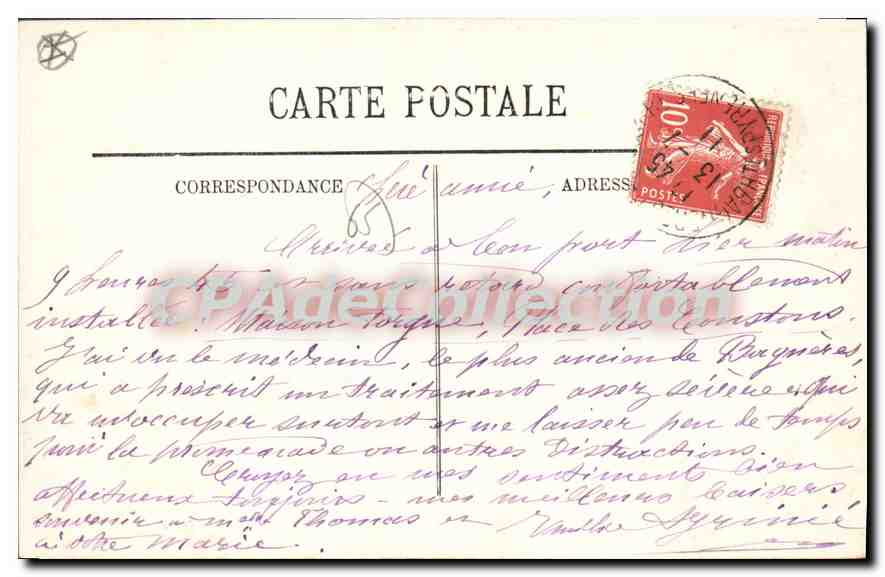 CARTE POSTALE
CORRESPONDANCE
ADRESSE
RÉPUBLIQUE FRANÇAISE
10c
POSTES
13
11
65
CPAdeCollection
Arrivée à bon port hier matin
9 heures et sans retard confortablement
installée. Maison Forgue, Place des Coustous.
J'ai vu le médecin, le plus ancien de Bagnères,
qui a prescrit un traitement assez sévère. Qui
va m'occuper surtout et me laisser peu de temps
pour la promenade ou autres Distractions.
Croyez en mes sentiments bien
affectueux toujours - mes meilleurs baisers
souvenir à Thomas et
à votre Marie.